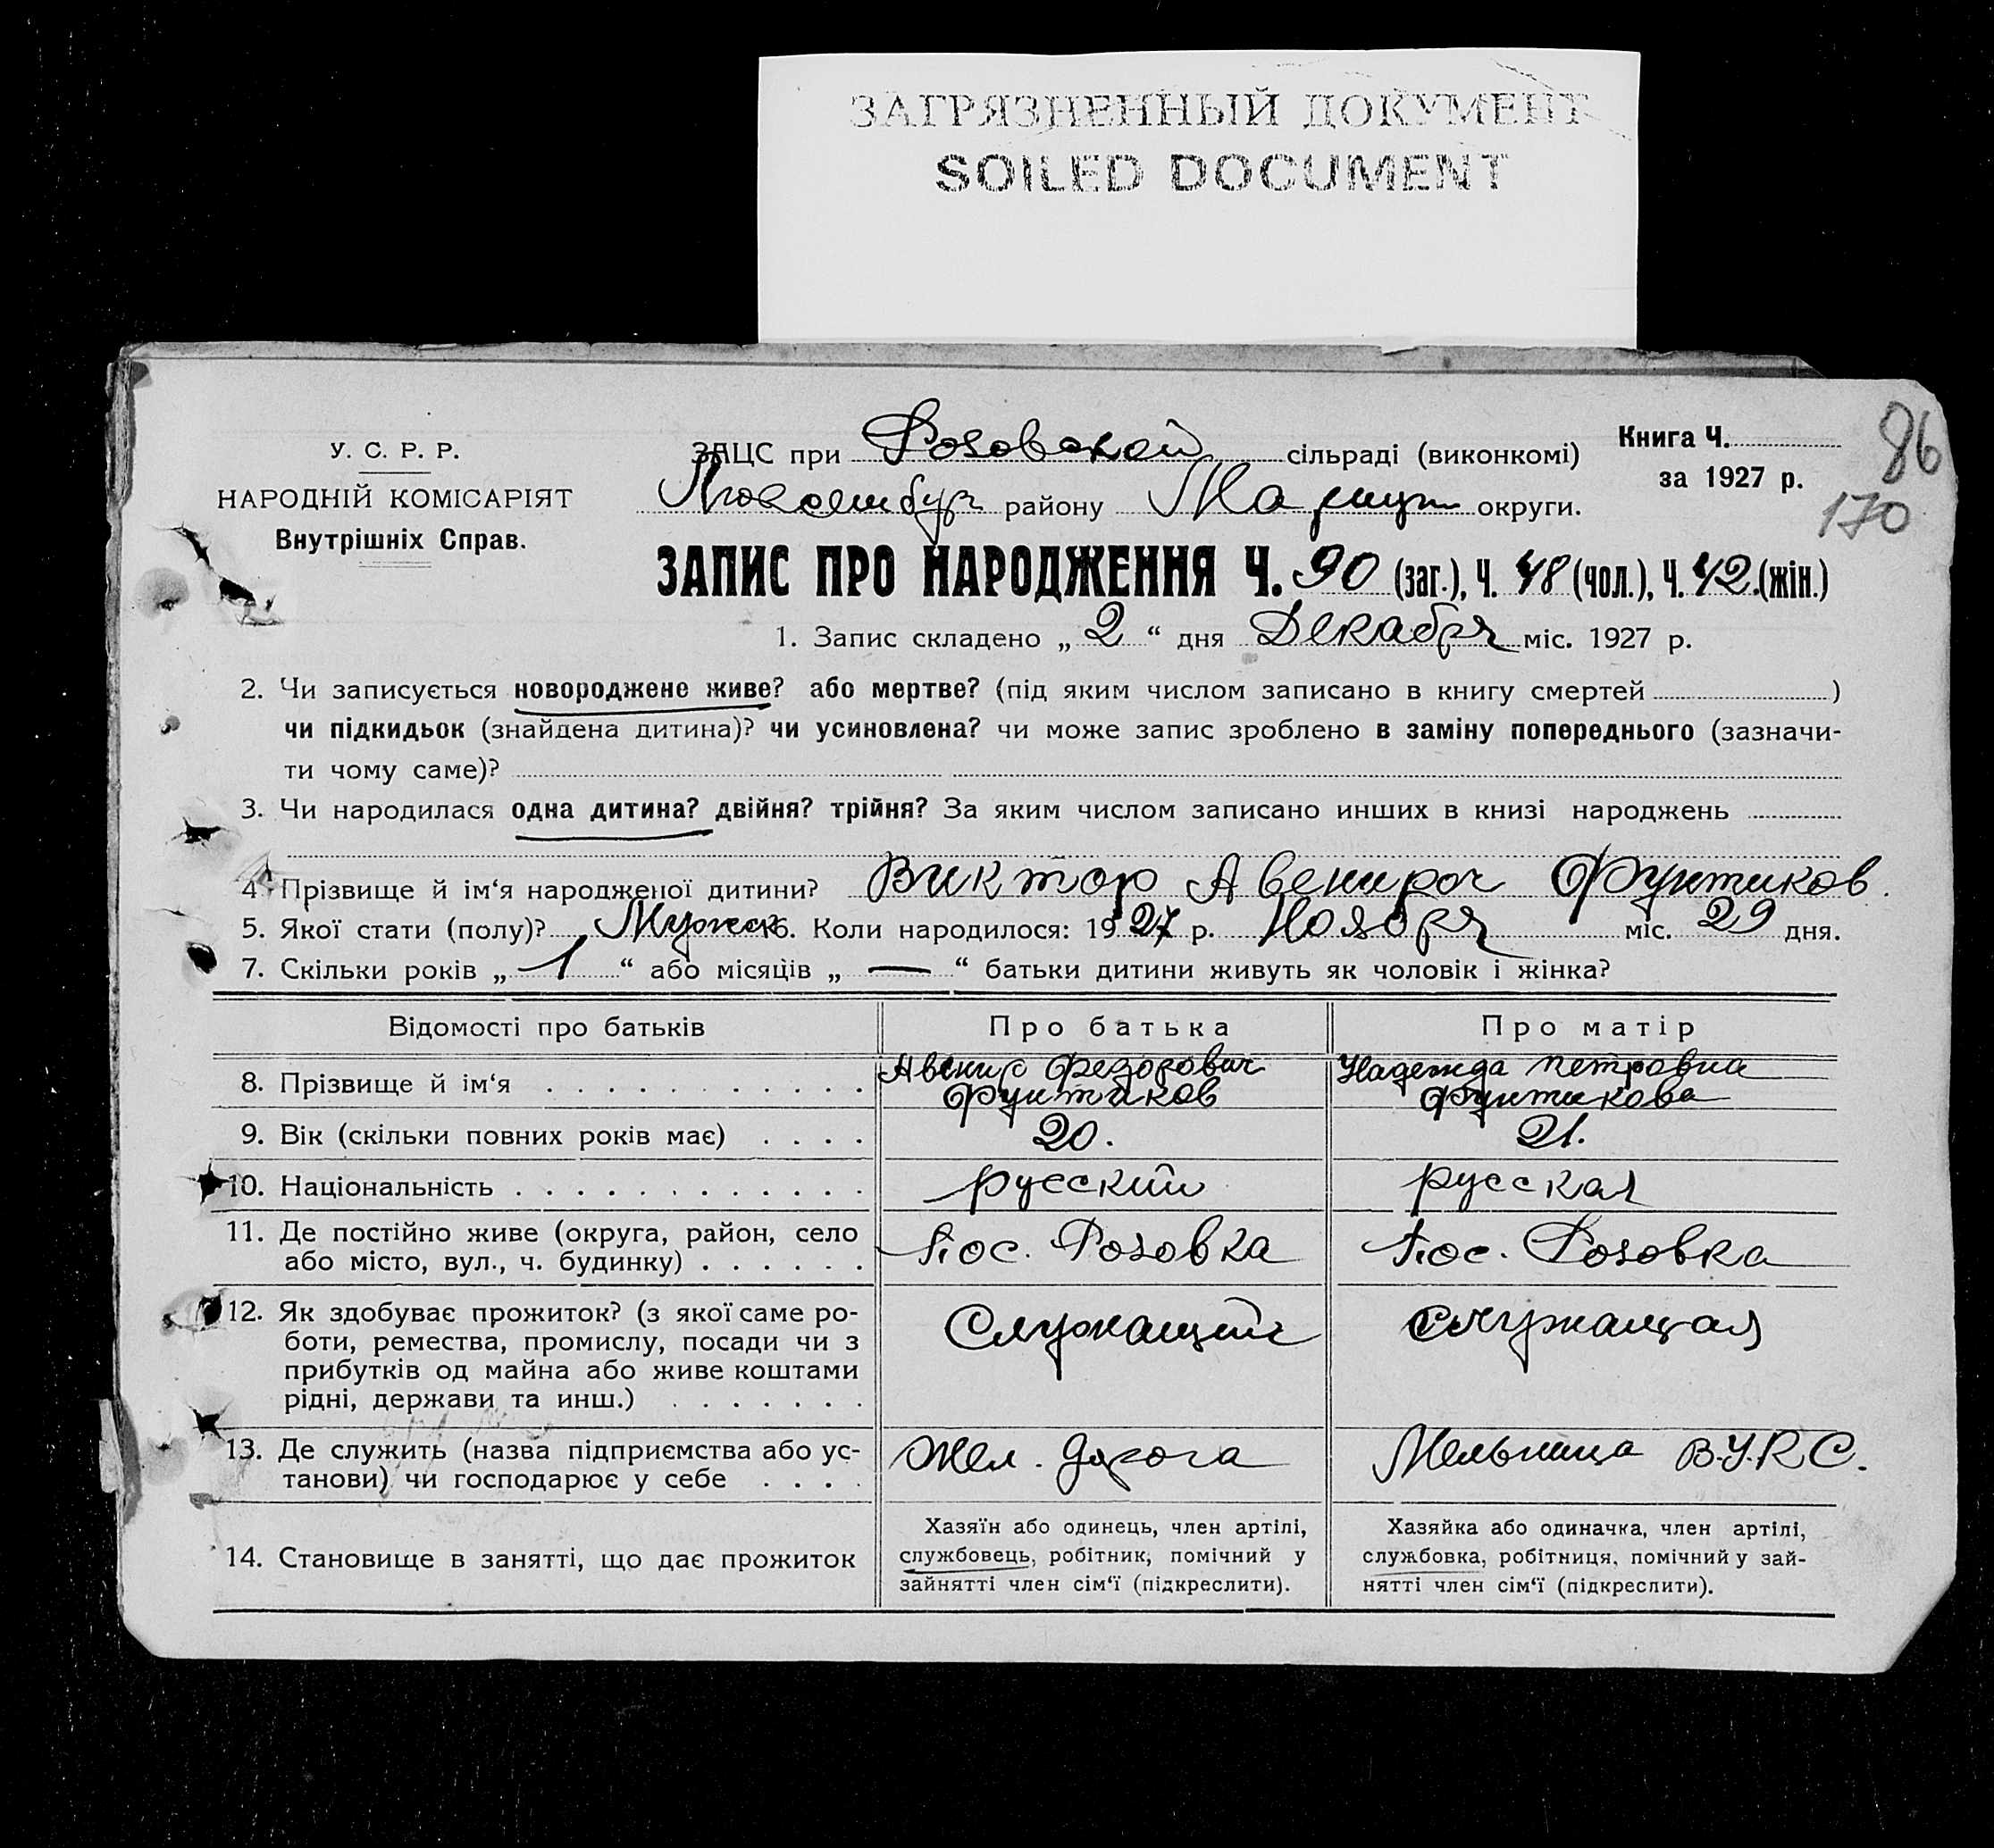 ЗАГРЯЗНЕННЫЙ ДОКУМЕНТ
SOILED DOCUMENT
86
170
У. С. Р. Р.
НАРОДНІЙ КОМІСАРІЯТ
Внутрішніх Справ.
ЗАЦС при Розовской сільраді (виконкомі)
Люксембург району Мариуп округи.
Книга Ч.
за 1927 р.
ЗАПИС ПРО НАРОДЖЕННЯ Ч. 90 (заг.), Ч. 48 (чол.), Ч. 42 (жін.)
1. Запис складено „ 2 “ дня Декабря міс. 1927 р.
2. Чи записується новороджене живе? або мертве? (під яким числом записано в книгу смертей )
чи підкидьок (знайдена дитина)? чи усиновлена? чи може запис зроблено в заміну попереднього (зазначи-
ти чому саме)?
3. Чи народилася одна дитина? двійня? трійня? За яким числом записано инших в книзі народжень
4. Прізвище й ім‘я народженої дитини? Виктор Авениров Фунтиков.
5. Якої стати (полу)? Мужск 6. Коли народилося: 1927 р. Ноября міс. 29 дня.
7. Скільки років „ 1 “ або місяців „ — “ батьки дитини живуть як чоловік і жінка?
Відомості про батьків Про батька Про матір
8. Прізвище й ім‘я
Авенир Федорович
Фунтиков
Надежда Петровна
Фунтикова
9. Вік (скільки повних років має) 20. 21.
10. Національність русский русская
11. Де постійно живе (округа, район, село
або місто, вул., ч. будинку)
Пос. Розовка
Пос. Розовка
12. Як здобуває прожиток? (з якої саме ро-
боти, ремества, промислу, посади чи з
прибутків од майна або живе коштами
рідні, держави та инш.)
Служащий
Служащая
13. Де служить (назва підприємства або ус-
танови) чи господарює у себе
Жел. дорога
Мельница В.У.К.С.
14. Становище в занятті, що дає прожиток
Хазяїн або одинець, член артілі,
службовець, робітник, помічний у
зайнятті член сім‘ї (підкреслити).
Хазяйка або одиначка, член артілі,
службовка, робітниця, помічний у зай-
нятті член сім‘ї (підкреслити).